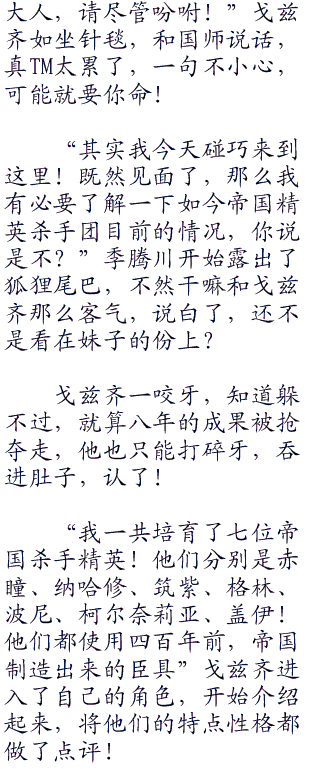 大人，请尽管吩咐！”戈兹
齐如坐针毯，和国师说话，
真TM太累了，一句不小心，
可能就要你命！
“其实我今天碰巧来到
这里！既然见面了，那么我
有必要了解一下如今帝国精
英杀手团目前的情况，你说
是不？”季腾川开始露出了
狐狸尾巴，不然干嘛和戈兹
齐那么客气，说白了，还不
是看在妹子的份上？
戈兹齐一咬牙，知道躲
不过，就算八年的成果被抢
夺走，他也只能打碎牙，吞
进肚子，认了！
“我一共培育了七位帝
国杀手精英！他们分别是赤
瞳、纳哈修、筑紫、格林、
波尼、柯尔奈莉亚、盖伊！
他们都使用四百年前，帝国
制造出来的臣具”戈兹齐进
入了自己的角色，开始介绍
起来，将他们的特点性格都
做了点评！